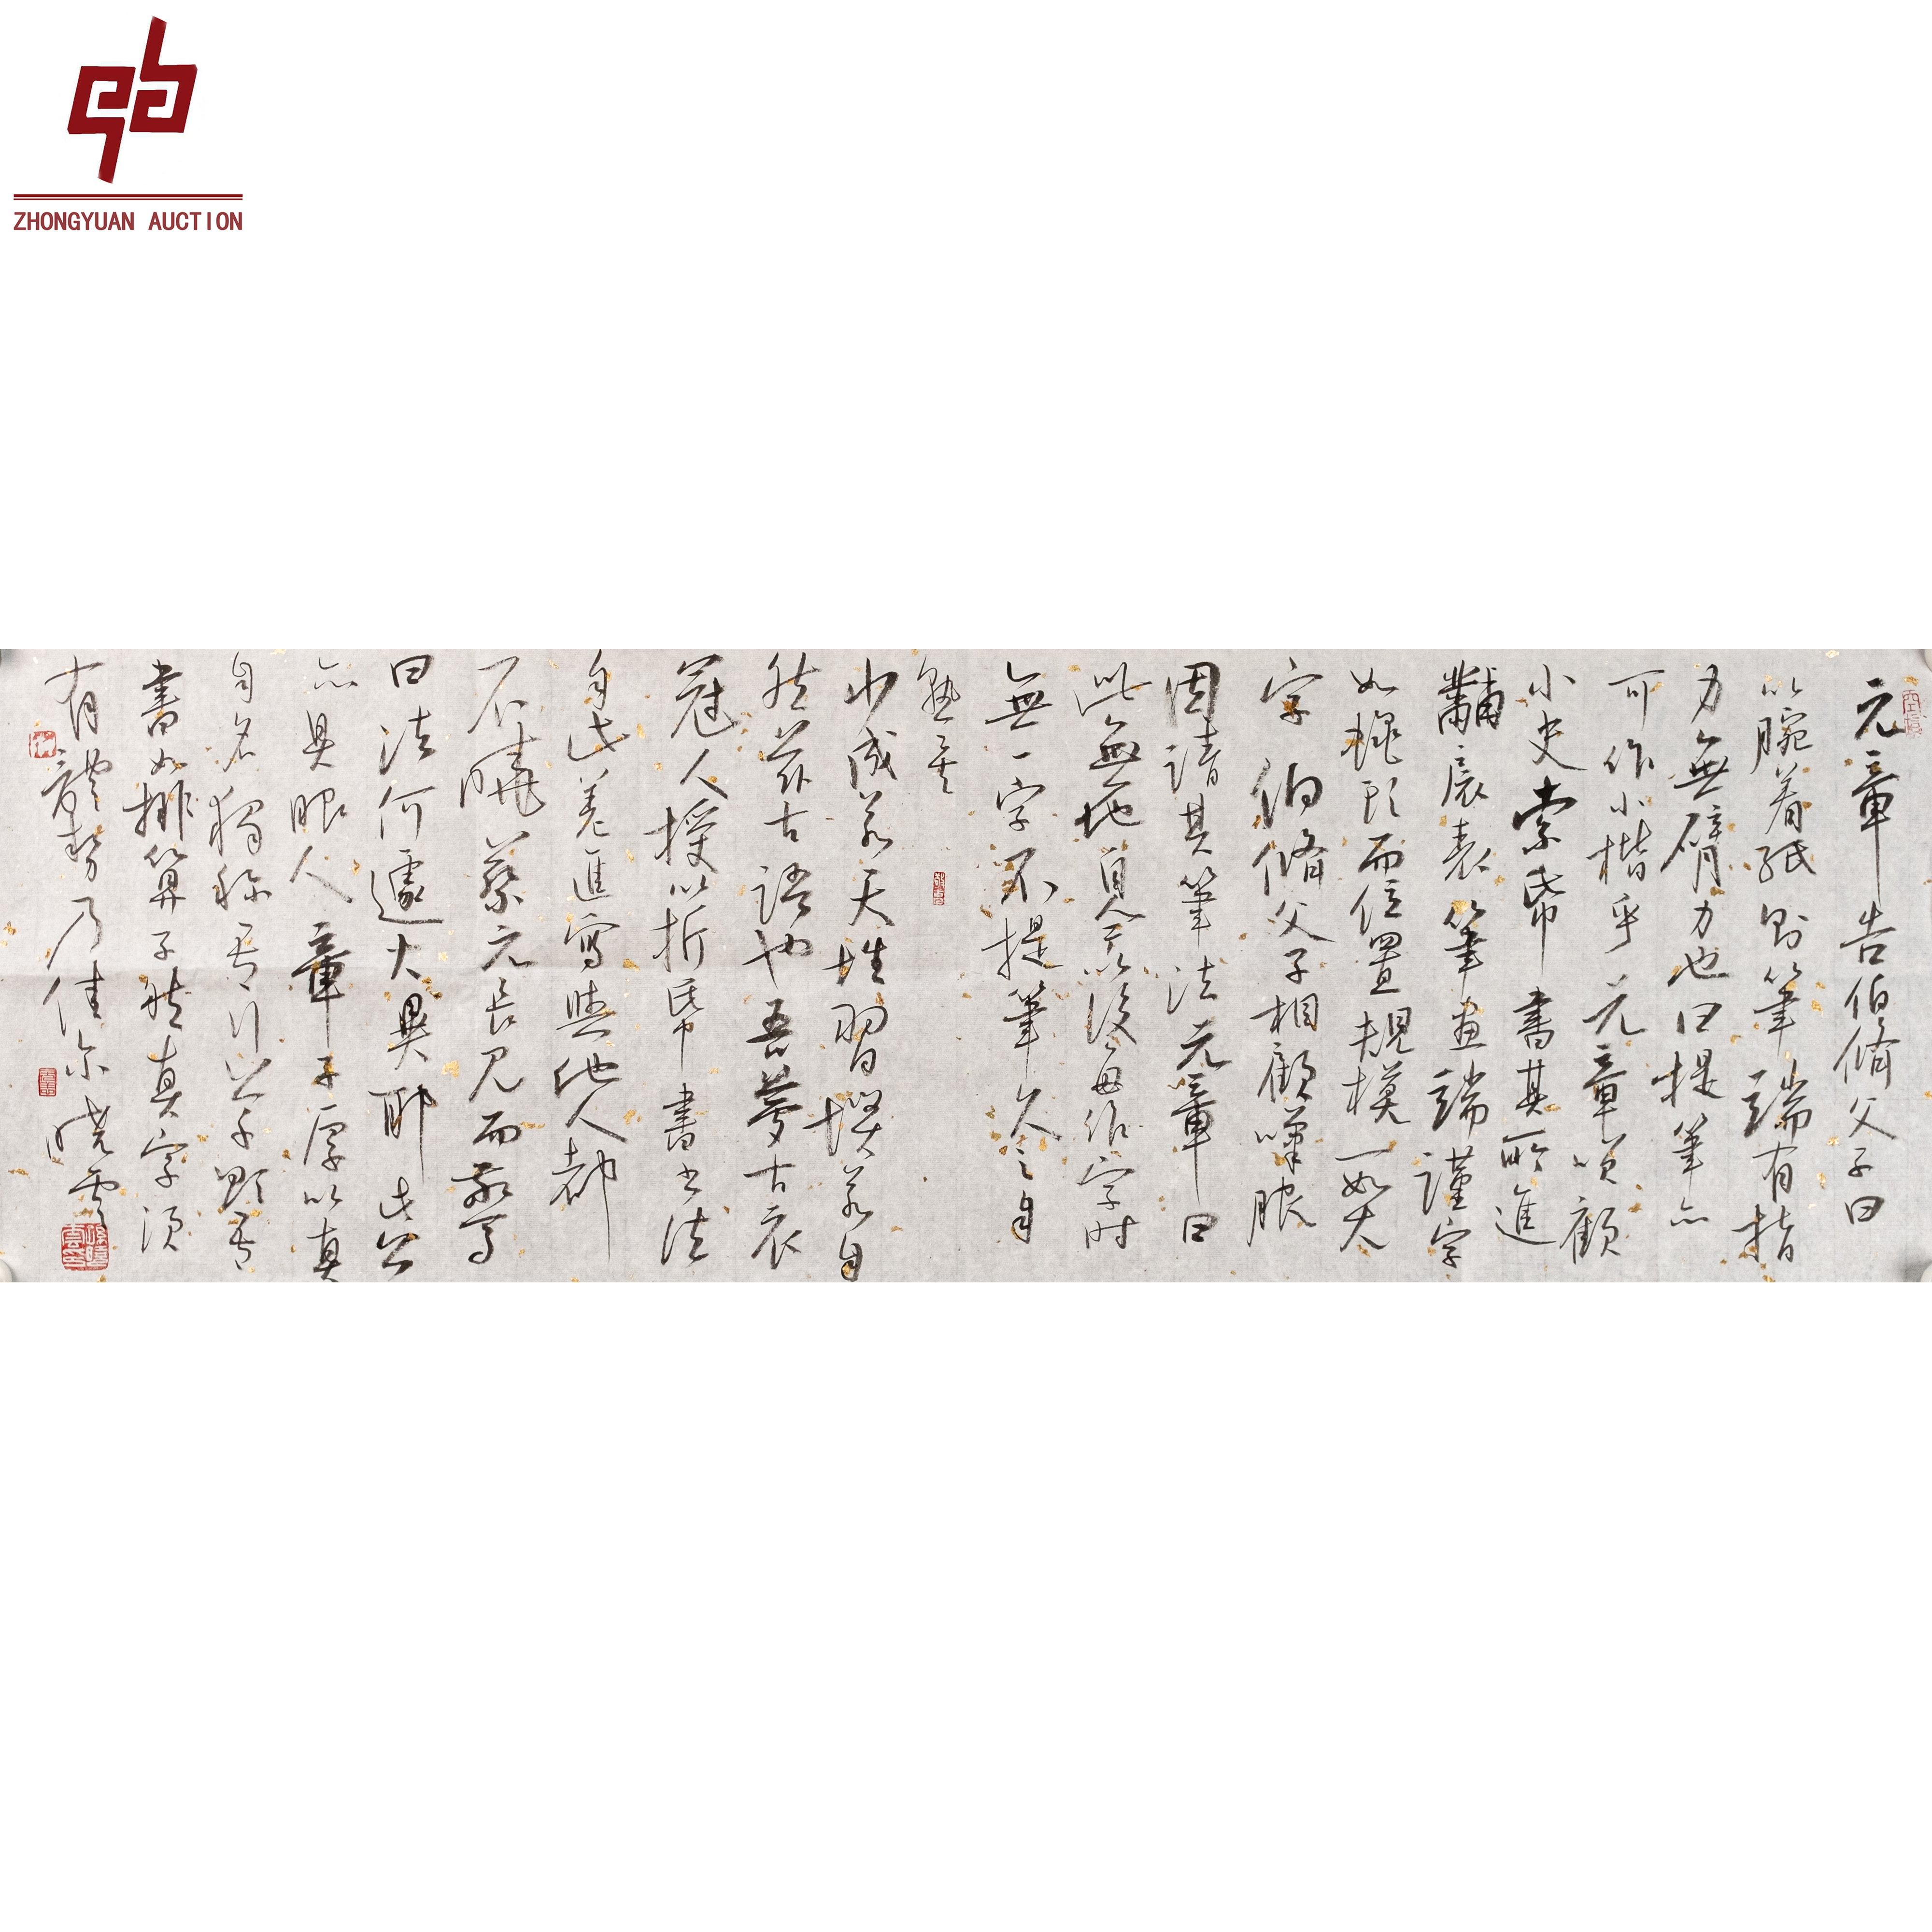 ZHONGYUAN AUCTION
元章告伯脩父子曰
以腕着紙則筆端有指
力無臂力也曰提筆亦
可作小楷乎元章笑顧
小史索紙書其所進
黼扆表筆畫端謹字
如蠅頭而位置規模一如大
字伯脩父子相顧嘆服
因請其筆法元章曰
此無他自今以後每作字時
無一字不提筆久之自
熟矣
少成若天性習慣若自
然茲古語也吾夢古衣
冠人授以折紙書書法
自此差進寫與他人都
不曉蔡元長見而驚
曰法何遽大異耶此公
亦具眼人章子厚以真
自名獨稱吾行草欲吾
書如排算子然真字須
有體勢乃佳尔 曉雲